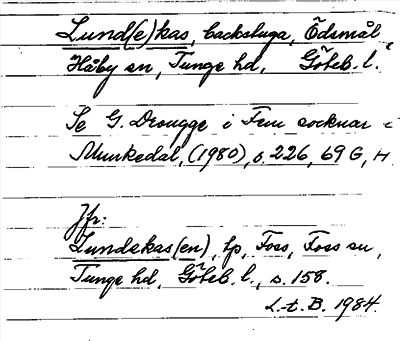 Lund(e)kas, backstuga, Ödsmål
Håby sn, Tunge hd, Göteb. l.
Se G. Drougge i Fem socknar i
Munkedal, (1980), s. 226, 69 G, H
Jfr:
Lundekas(en), tp, Foss, Foss sn,
Tunge hd, Göteb. l., s. 158.
L.-t. B. 1984.